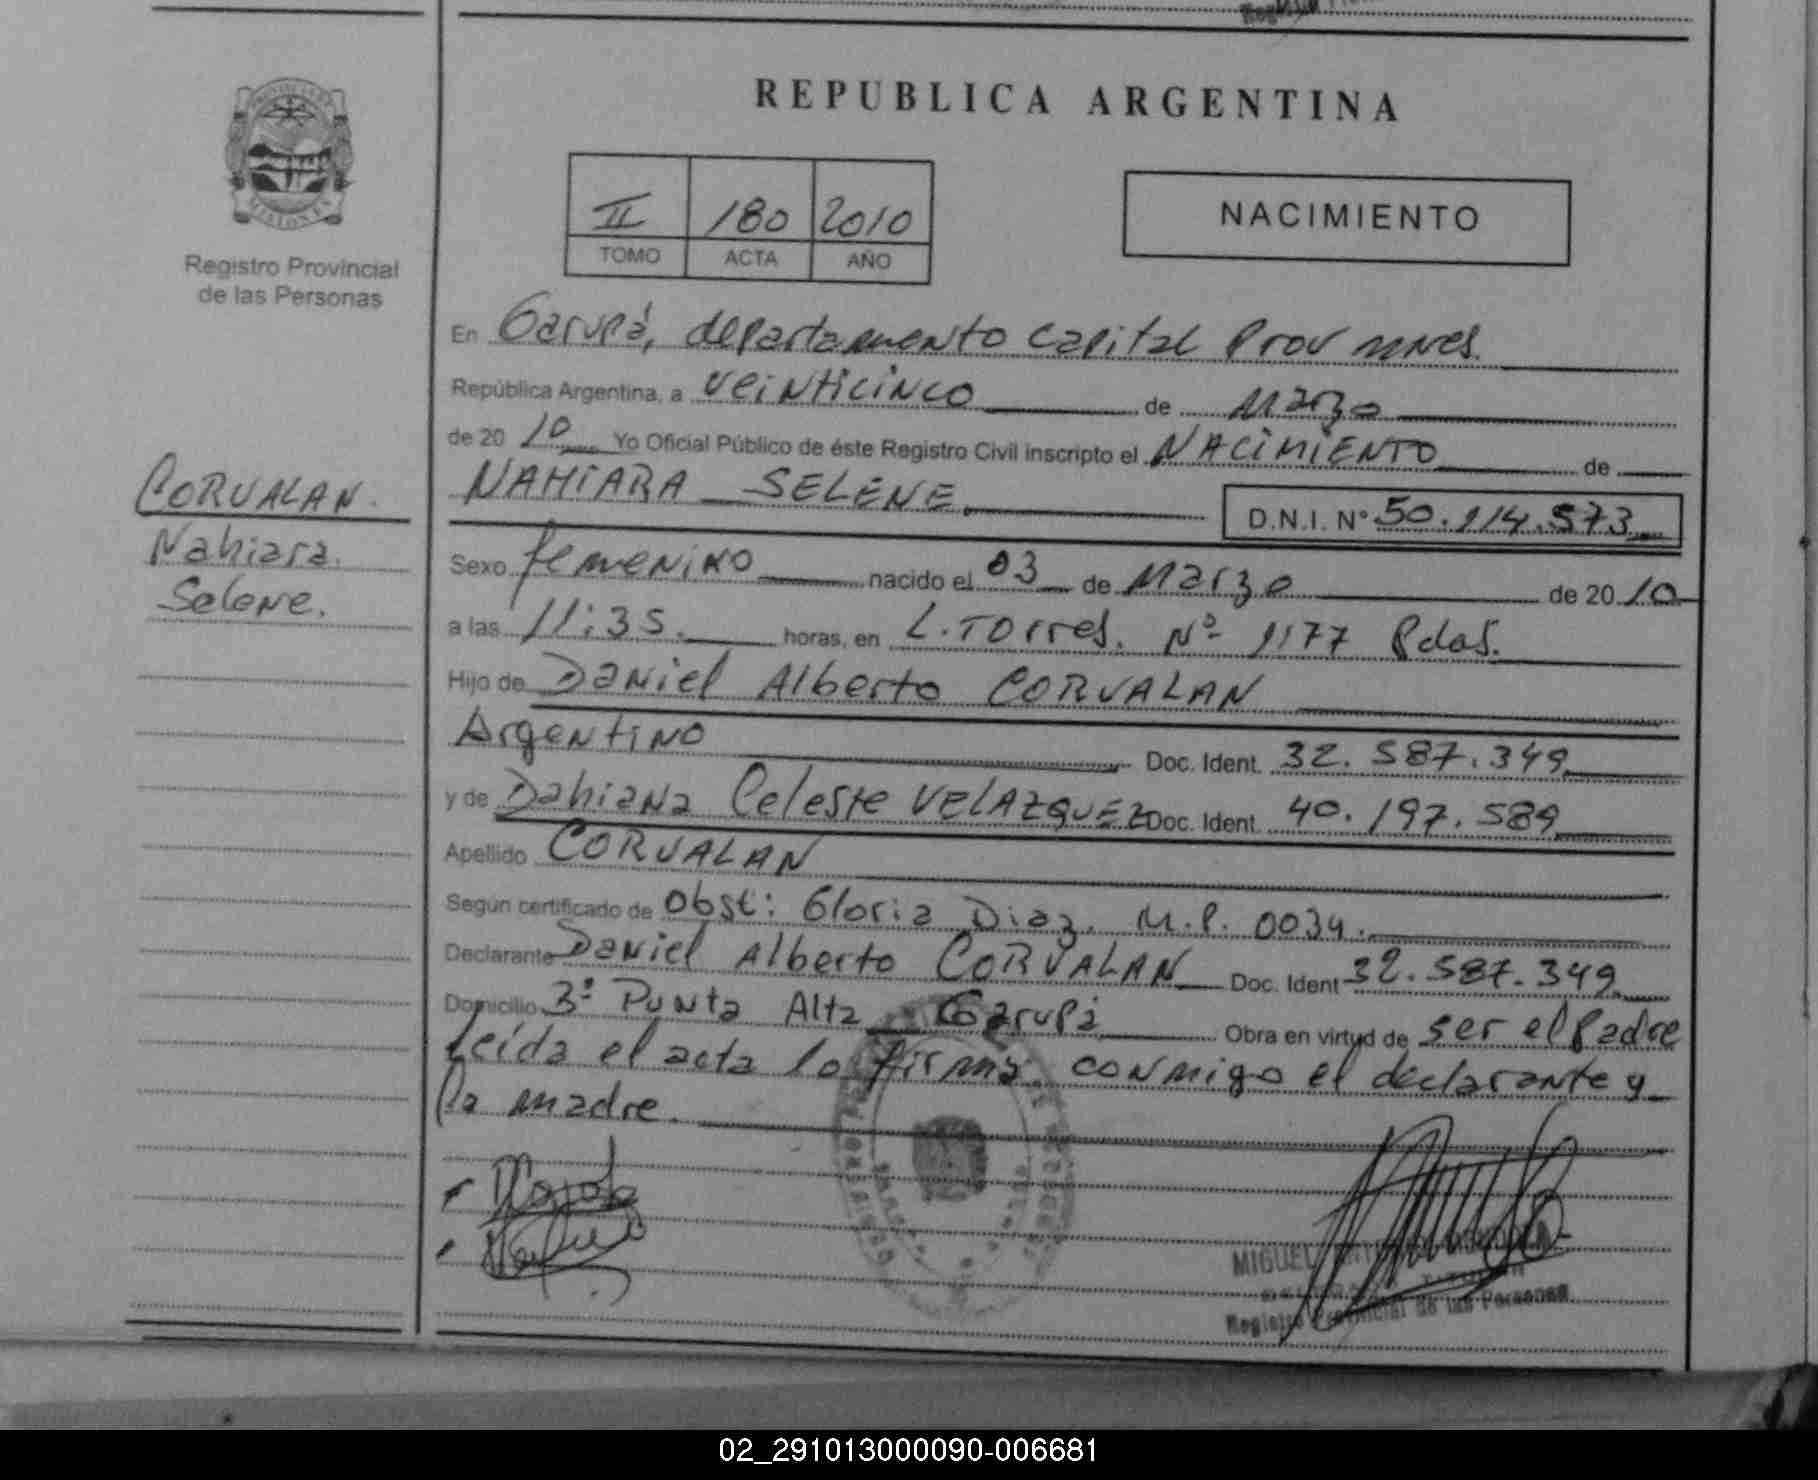 REPUBLICA ARGENTINA
PROVINCIA DE
MISIONES
Registro Provincial
de las Personas
II 180 2010
TOMO ACTA AÑO
NACIMIENTO
En Garupá, departamento Capital Prov mnes.
República Argentina, a veinticinco de Marzo
de 20 10 Yo Oficial Público de éste Registro Civil inscripto el NACIMIENTO de
CORVALAN.
Nahiara.
Selene.
NAHIARA SELENE.
D.N.I. Nº 50.114.573
Sexo femenino nacido el 03 de Marzo de 20 10
a las 11:35. horas, en L. Torres. Nº 1177 Pdas.
Hijo de Daniel Alberto CORVALAN
Argentino Doc. Ident. 32.587.349
y de Dahiana Celeste VELAZQUEZ Doc. Ident. 40.197.589
Apellido CORVALAN
Según certificado de Obst: Gloria Diaz. M.P. 0034.
Declarante Daniel Alberto CORVALAN Doc. Ident 32.587.349
Domicilio 3º Punta Alta Garupá Obra en virtud de ser el Padre
Leída el acta lo firma conmigo el declarante y
la madre.
MIGUEL
Registro Provincial de las Personas
02_291013000090-006681